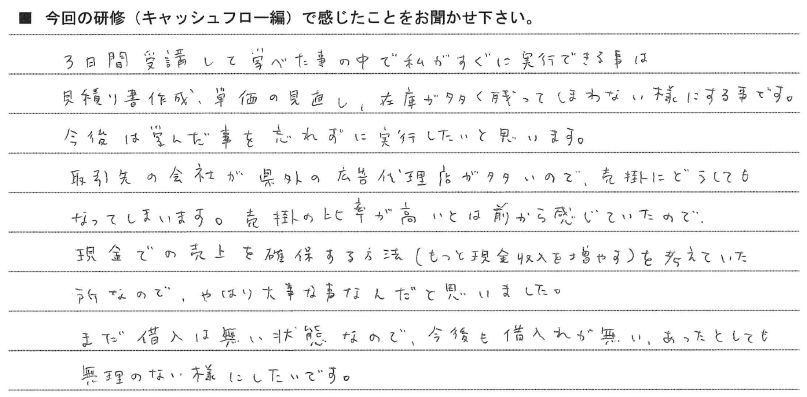 ■ 今回の研修（キャッシュフロー編）で感じたことをお聞かせ下さい。
3日間受講して学べた事の中で私がすぐに実行できる事は
見積り書作成、単価の見直し、在庫が多く残ってしまわない様にする事です。
今後は学んだ事を忘れずに実行したいと思います。
取引先の会社が県外の広告代理店が多いので、売掛にどうしても
なってしまいます。売掛の比率が高いとは前から感じていたので、
現金での売上を確保する方法(もっと現金収入を増やす)を考えていた
所なので、やはり大事な事なんだと思いました。
まだ借入は無い状態なので、今後も借入れが無い、あったとしても
無理のない様にしたいです。